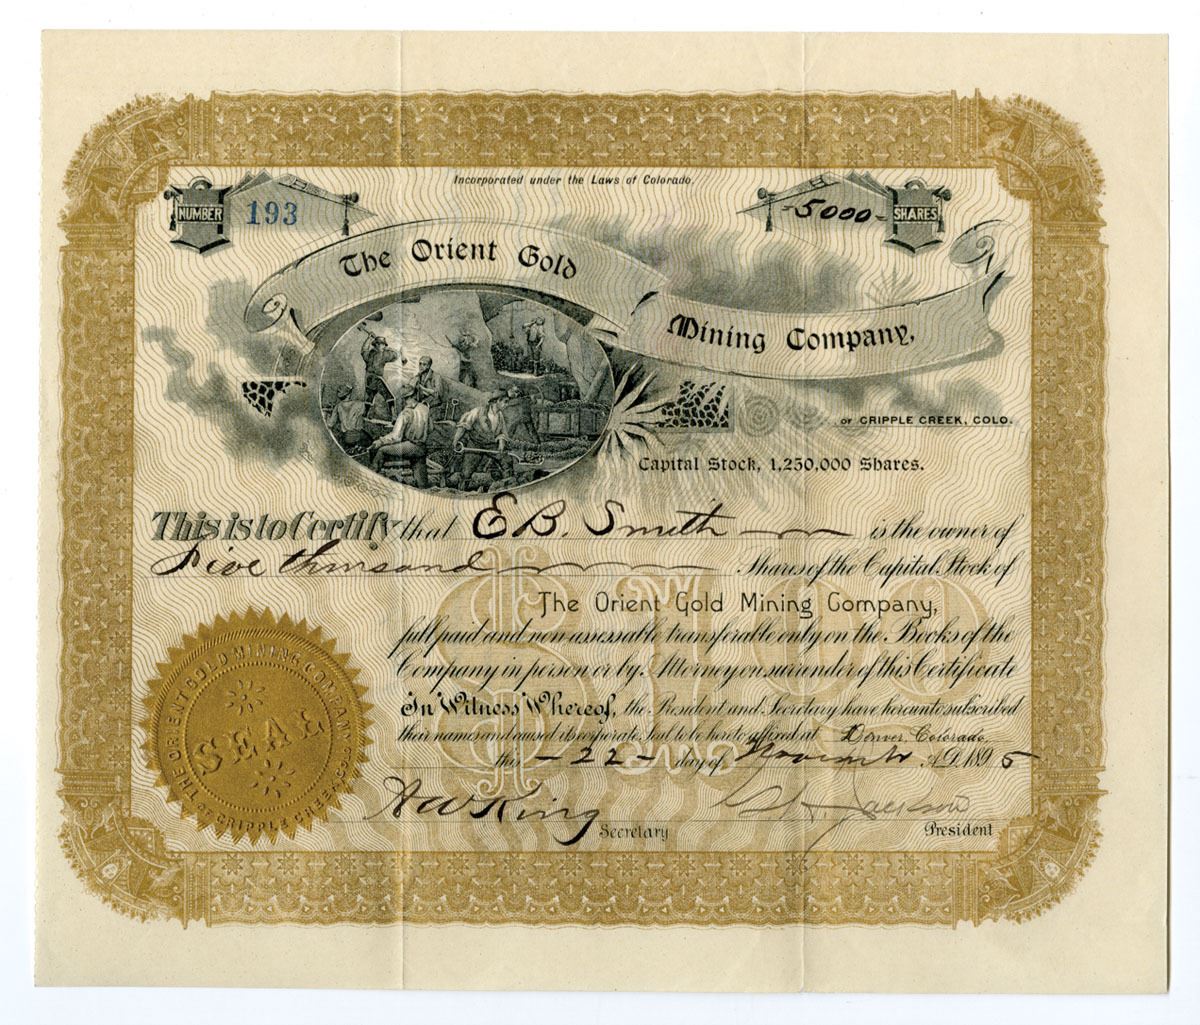 Incorporated under the Laws of Colorado.
NUMBER 193
-5000- SHARES
The Orient Gold
Mining Company,
OF CRIPPLE CREEK, COLO.
Capital Stock, 1,250,000 Shares.
This is to Certify that E B. Smith is the owner of
Five thousand Shares of the Capital Stock of
$100
The Orient Gold Mining Company,
full paid and non-assessable transferable only on the Books of the
Company in person or by Attorney on surrender of this Certificate
In Witness Whereof, the President and Secretary have hereunto subscribed
their names and caused its corporate seal to be hereto affixed at Denver, Colorado,
this -22- day of November A.D. 1895
A W King Secretary
Jackson President
THE ORIENT GOLD MINING COMPANY
OF CRIPPLE CREEK COLO
SEAL